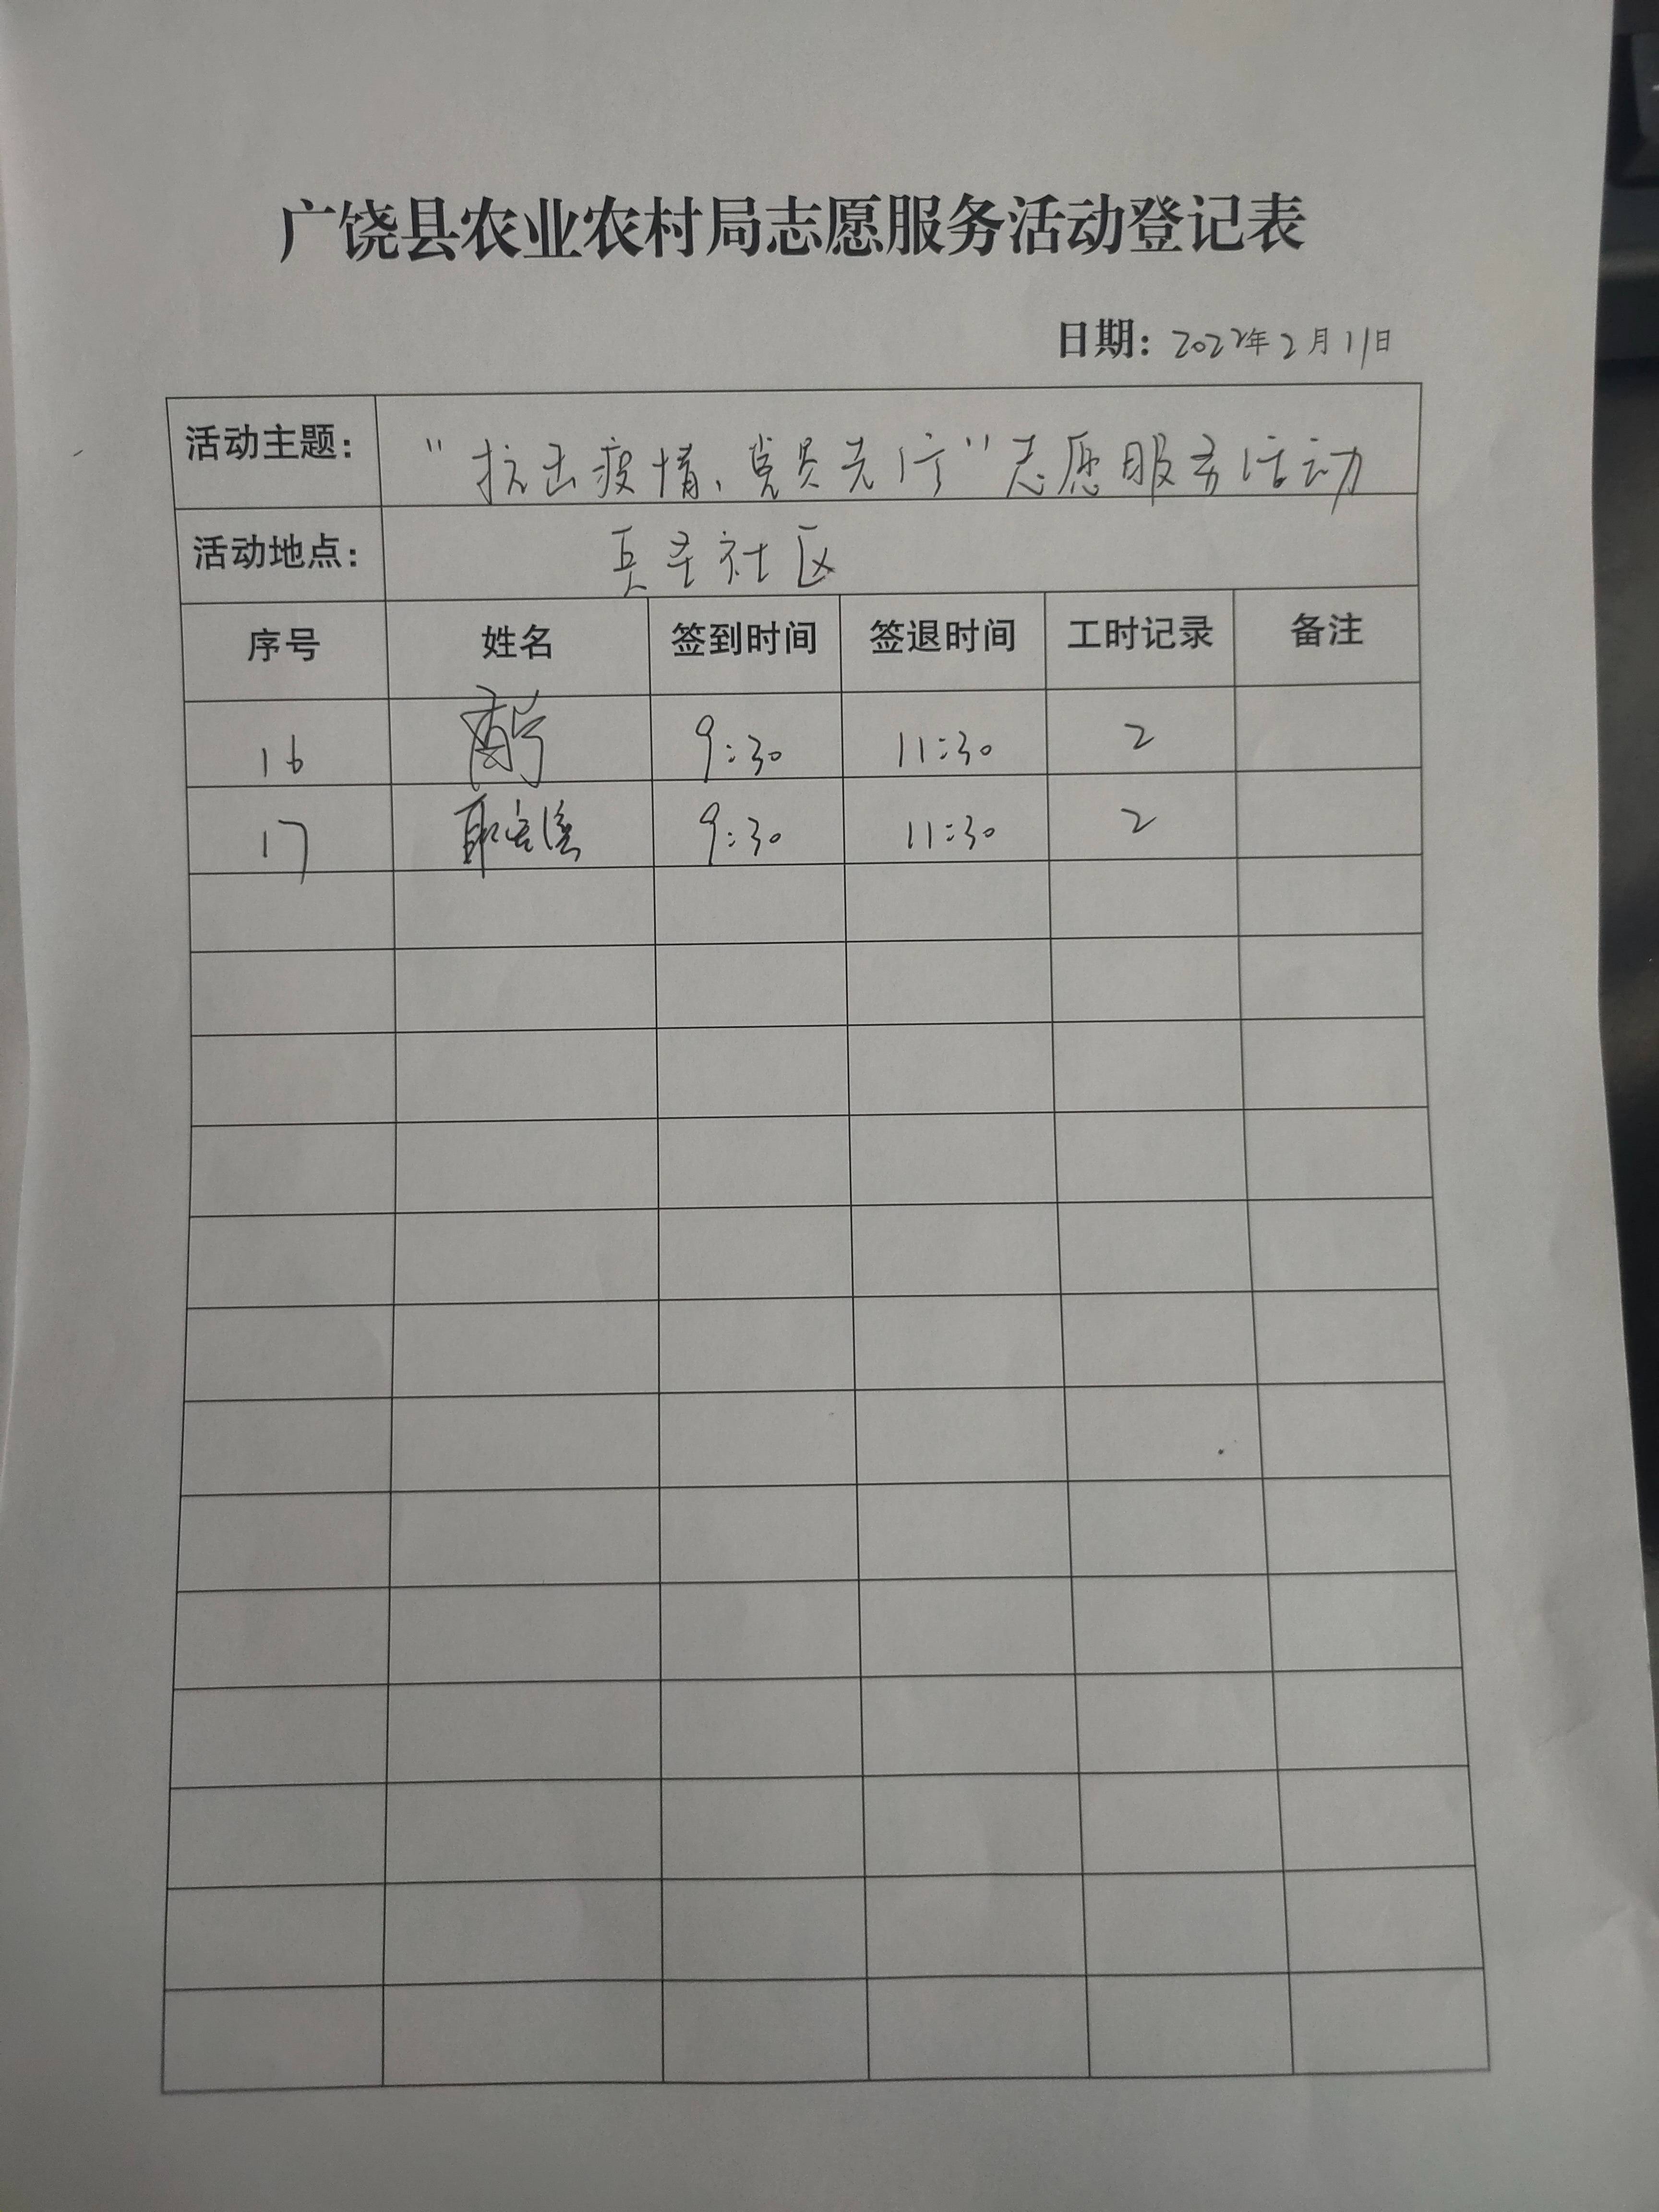 广饶县农业农村局志愿服务活动登记表
日期: 2022年2月11日
活动主题: "抗击疫情、党员先行"志愿服务活动
活动地点: 兵圣社区
序号 姓名 签到时间 签退时间 工时记录 备注
16 9:30 11:30 2
17 9:30 11:30 2